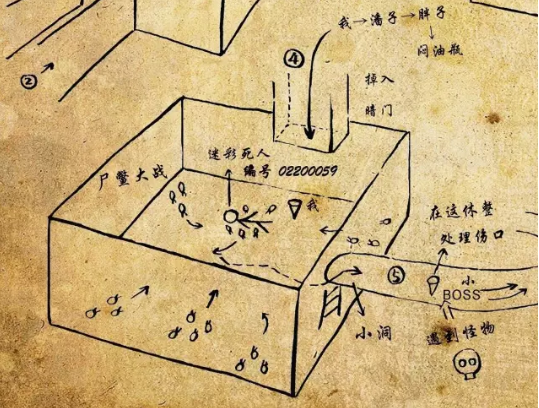 ②
④
我→潘子→胖子
↓
闷油瓶
掉入
暗门
迷彩死人
编号 02200059
尸鳖大战
我
在这休整
处理伤口
⑤
小
BOSS
小洞
遇到怪物